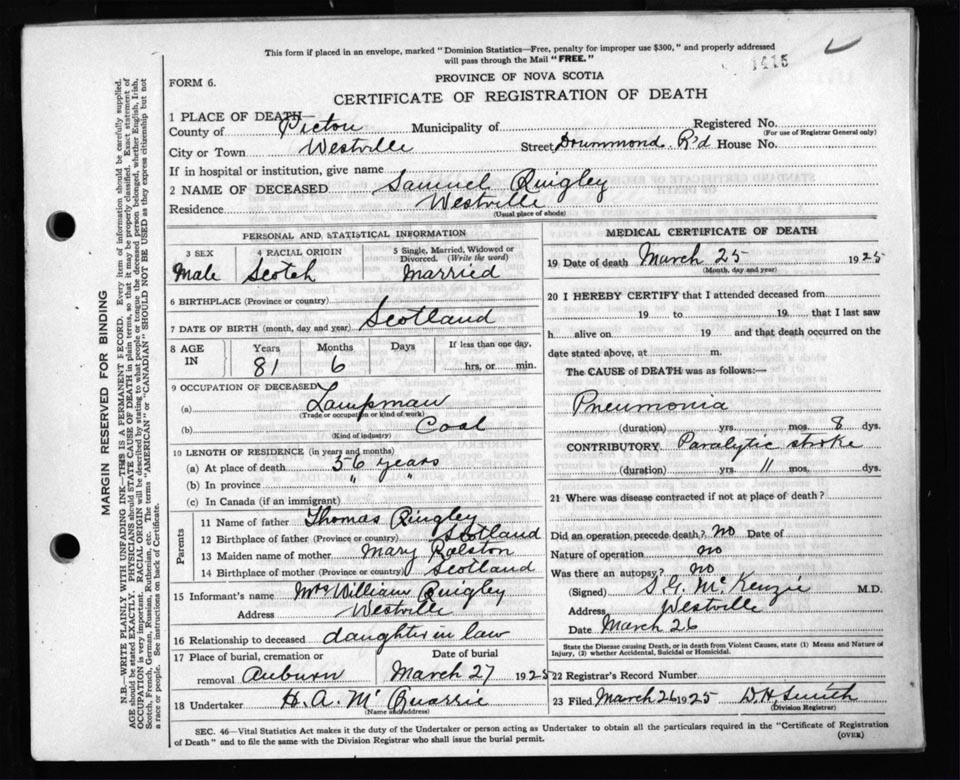 This form if placed in an envelope, marked "Dominion Statistics—Free, penalty for improper use $300," and properly addressed
will pass through the Mail "FREE."
1415
PROVINCE OF NOVA SCOTIA
FORM 6.
CERTIFICATE OF REGISTRATION OF DEATH
1 PLACE OF DEATH—
County of Pictou Municipality of Registered No.
(For use of Registrar General only)
City or Town Westville Street Drummond R'd House No.
If in hospital or institution, give name
2 NAME OF DECEASED Samuel Quigley
Residence Westville
(Usual place of abode)
PERSONAL AND STATISTICAL INFORMATION
3 SEX 4 RACIAL ORIGIN 5 Single, Married, Widowed or
Divorced. (Write the word)
Male Scotch Married
6 BIRTHPLACE (Province or country)
Scotland
7 DATE OF BIRTH (month, day and year)
8 AGE IN Years Months Days If less than one day,
81 6 hrs, or min.
9 OCCUPATION OF DECEASED
(a) Lampman
(Trade or occupation or kind of work)
(b) Coal
(Kind of industry)
10 LENGTH OF RESIDENCE (in years and months)
(a) At place of death 56 years
(b) In province " "
(c) In Canada (if an immigrant)
Parents
11 Name of father Thomas Quigley
12 Birthplace of father (Province or country) Scotland
13 Maiden name of mother Mary Ralston
14 Birthplace of mother (Province or country) Scotland
15 Informant's name Mrs William Quigley
Address Westville
16 Relationship to deceased daughter in law
17 Place of burial, cremation or Date of burial
removal Auburn March 27 1925
18 Undertaker H. A. McQuarrie
(Name and address)
MEDICAL CERTIFICATE OF DEATH
19 Date of death March 25 1925
(Month, day and year)
20 I HEREBY CERTIFY that I attended deceased from
19 to 19 that I last saw
h alive on 19 and that death occurred on the
date stated above, at m.
The CAUSE of DEATH was as follows:—
Pneumonia
(duration) yrs. mos. 8 dys.
CONTRIBUTORY Paralytic stroke
(duration) yrs. 11 mos. dys.
21 Where was disease contracted if not at place of death?
Did an operation precede death? no Date of
Nature of operation no
Was there an autopsy? no
(Signed) S. G. McKenzie M.D.
Address Westville
Date March 26
State the Disease causing Death, or in death from Violent Causes, state (1) Means and Nature of
Injury, (2) whether Accidental, Suicidal or Homicidal.
22 Registrar's Record Number
23 Filed March 26 1925 D H, Smith
(Division Registrar)
SEC. 46—Vital Statistics Act makes it the duty of the Undertaker or person acting as Undertaker to obtain all the particulars required in the "Certificate of Registration
of Death" and to file the same with the Division Registrar who shall issue the burial permit.
(OVER)
MARGIN RESERVED FOR BINDING
N.B.—WRITE PLAINLY WITH UNFADING INK—THIS IS A PERMANENT RECORD. Every item of information should be carefully supplied.
AGE should be stated EXACTLY. PHYSICIANS should STATE CAUSE OF DEATH in plain terms, so that it may be properly classified. Exact statement of
OCCUPATION is very important. RACIAL ORIGIN will be described by stating to what people or tongue the deceased person belonged, whether English, Irish,
Scotch, French, German, Russian, Ruthenian, etc. The terms "AMERICAN" or "CANADIAN" SHOULD NOT BE USED as they express citizenship but not
a race or people. See instructions on back of Certificate.